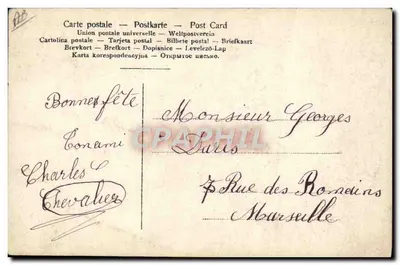 Carte postale — Postkarte — Post Card
Union postale universelle — Weltpostverein
Cartolina postale — Tarjeta postal — Bilhete postal — Briefkaart
Brevkort — Brefkort — Dopisnice — Levelező-Lap
Karta korespondencyjna — Открытое письмо.
Bonne fête
Ton ami
Charles C
Chevalier
Monsieur Georges
Paris
7 Rue des Romains
Marseille
CPAPHIL